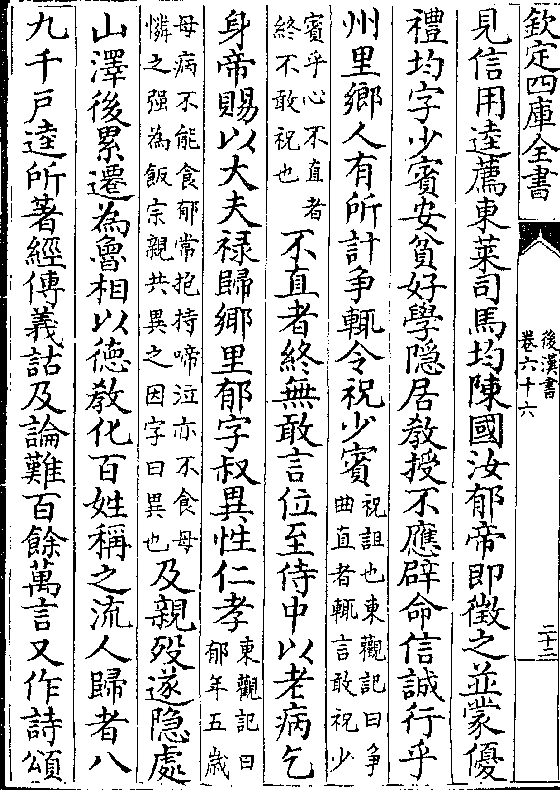 欽定四庫全書
後漢書
卷六十六
二十二
見信用逵薦東萊司馬均陳國汝郁帝即徵之並蒙優
禮均字少賓安貧好學隱居敎授不應辟命信誠行乎
州里鄉人有所計爭輒令祝少賓
祝詛也東觀記曰爭
曲直者輒言敢祝少
賓乎心不直者
終不敢祝也
不直者終無敢言位至侍中以老病乞
身帝賜以大夫禄歸鄉里郁字叔異性仁孝
東觀記曰
郁年五嵗
母病不能食郁常抱持啼泣亦不食母
憐之强為飯宗親共異之因字曰異也
及親殁遂隱處
山澤後累遷為魯相以徳敎化百姓稱之流人歸者八
九千戸逵所著經傳義詁及論難百餘萬言又作詩頌